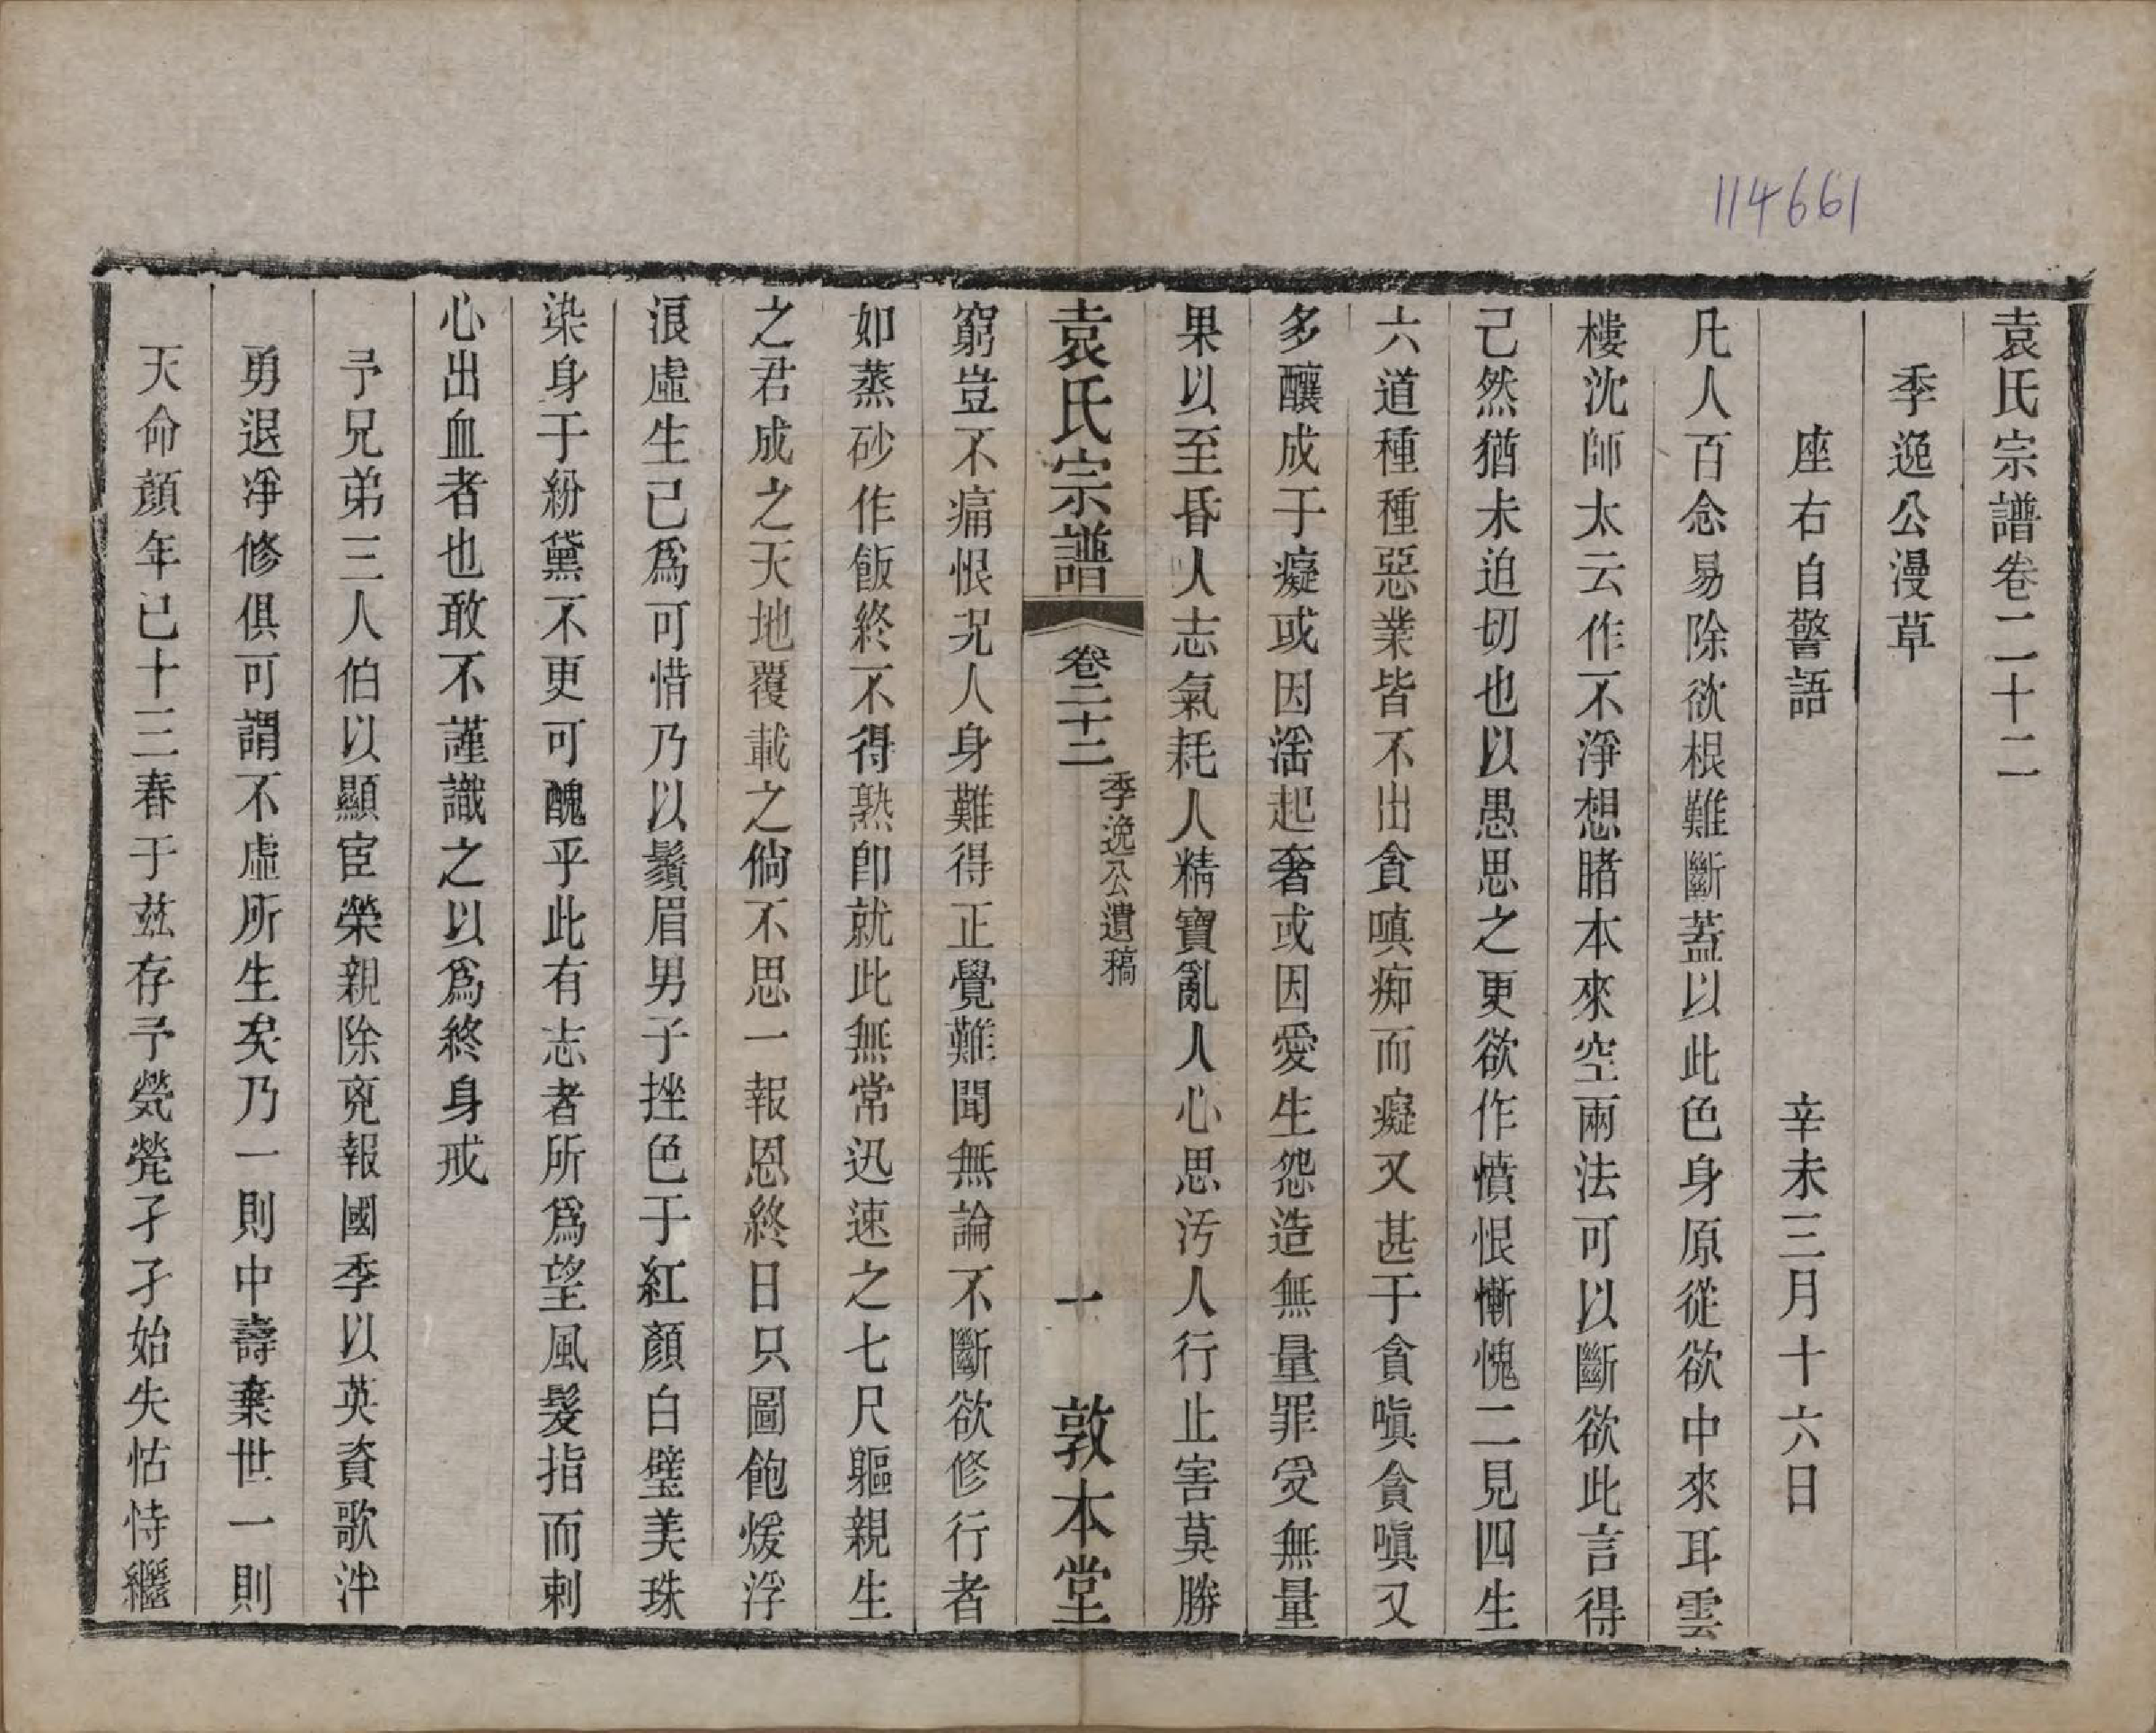 114661
袁氏宗譜卷二十二
季逸公漫草
座右自警語　辛未三月十六日
凡人百念易除欲根難斷蓋以此色身原從欲中來耳雲
棲沈師太云作不淨想睹本來空兩法可以斷欲此言得
己然猶未迫切也以愚思之更欲作憤恨慚愧二見四生
六道種種惡業皆不出貪嗔痴而癡又甚于貪嗔貪嗔又
多釀成于癡或因滛起奢或因愛生怨造無量罪受無量
果以至昏人志氣耗人精寶亂人心思汚人行止害莫勝
袁氏宗譜　卷二十二　季逸公遺稿　一　敦本堂
窮豈不痛恨况人身難得正覺難聞無論不斷欲修行者
如蒸砂作飯終不得熟卽就此無常迅速之七尺軀親生
之君成之天地覆載之倘不思一報恩終日只圖飽煖浮
浪虛生已爲可惜乃以鬚眉男子挫色于紅顏白璧美珠
染身于紛黛不更可醜乎此有志者所爲望風髮指而刺
心出血者也敢不謹識之以爲終身戒
予兄弟三人伯以顯宦榮親除兇報國季以英資歌泮
勇退淨修俱可謂不虛所生矣乃一則中壽棄世一則
天命顏年已十三春于茲存予煢煢孑孑始失怙恃繼